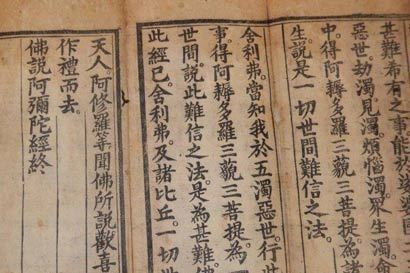 甚難希有之事能於娑婆國
惡世劫濁見濁煩惱濁衆生濁命
中得阿耨多羅三藐三菩提爲諸
生說是一切世間難信之法
舍利弗當知我於五濁惡世行
事得阿耨多羅三藐三菩提爲一
世間說此難信之法是爲甚難佛
此經已舍利弗及諸比丘一切
天人阿修羅等聞佛所說歡喜
作禮而去
佛說阿彌陀經終